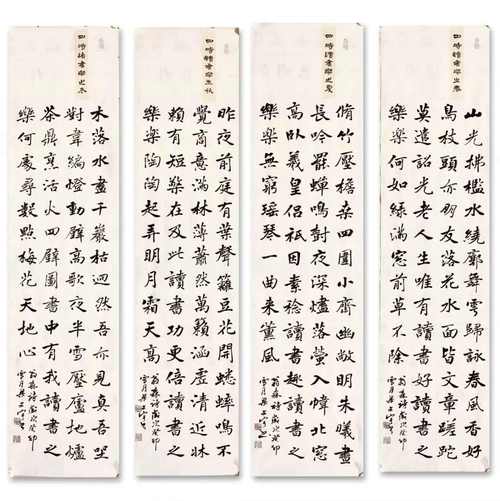 四時讀書樂之春
山光拂檻水繞廊舞雩歸詠春風香好
鳥枝頭亦朋友落花水面皆文章蹉跎
莫遣韶光老人生唯有讀書好讀書之
樂樂何如綠滿窓前草不除
翁森詩歲次癸卯
雪月
四時讀書樂之夏
脩竹壓檐桑四圍小齋幽敞明朱曦晝
長吟罷蟬鳴樹夜深燼落螢入幃北窓
高臥羲皇侶祇因素稔讀書趣讀書之
樂樂無窮瑤琴一曲来薰風
翁森詩歲次癸卯
雪月
四時讀書樂之秋
昨夜前庭有葉聲籬豆花開蟋蟀鳴不
覺商意滿林薄蕭然萬籟涵虛清近牀
賴有短檠在及此讀書功更倍讀書之
樂樂陶陶起弄明月霜天高
翁森詩歲次癸卯
雪月
四時讀書樂之冬
木落水盡千巖枯迥然吾亦見真吾坐
對韋編燈動壁高歌夜半雪壓廬地爐
茶鼎烹活火四壁圖書中有我讀書之
樂何處尋數點梅花天地心
翁森詩歲次癸卯
雪月